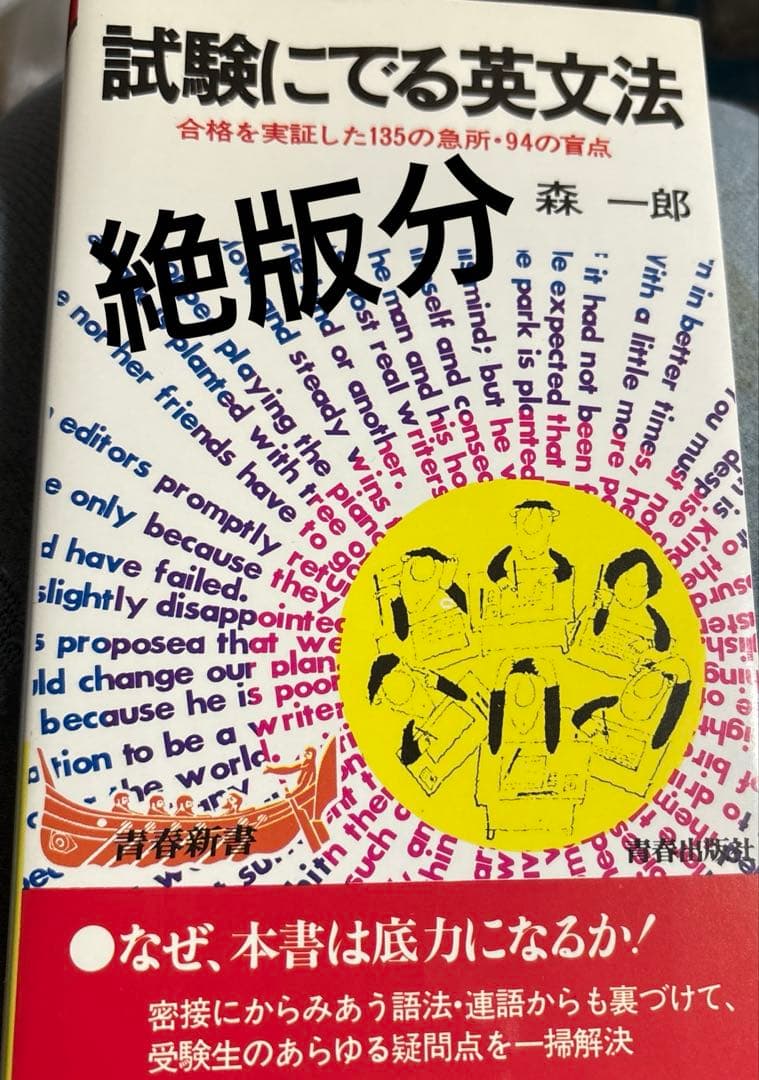 試験にでる英文法
合格を実証した135の急所・94の盲点
森 一郎
絶版分
n in better times,
With a little more
if it had not been
le expected that
e park is planted
mind; but he
self and consec
he man and his ho
most real writers
or another.
and steady wins
playing the piano
planted with tree
nor her friends have to go
editors promptly
e only because they
d have failed.
slightly disappointed
s proposed that we
ld change our plan
because he is poor
tion to be a writer.
the world.
You must
despise
青春新書
青春出版社
●なぜ、本書は底力になるか!
密接にからみあう語法・連語からも裏づけて、
受験生のあらゆる疑問点を一掃解決